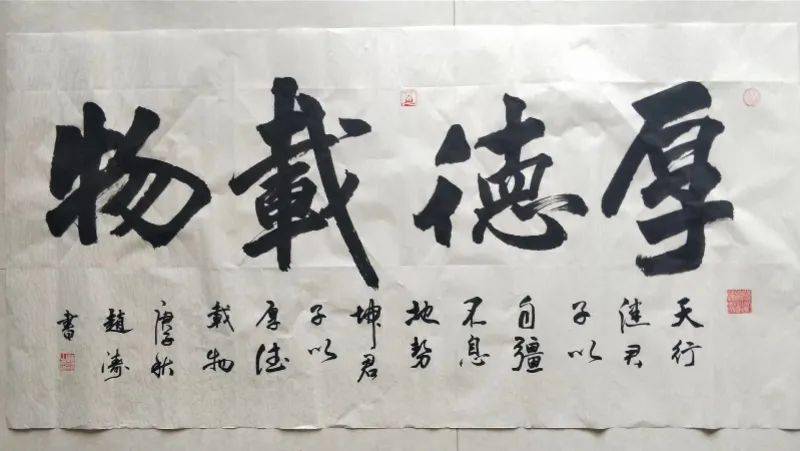 厚德載物
天行
健君
子以
自彊
不息
地势
坤君
子以
厚德
载物
庚子秋
趙濤
書